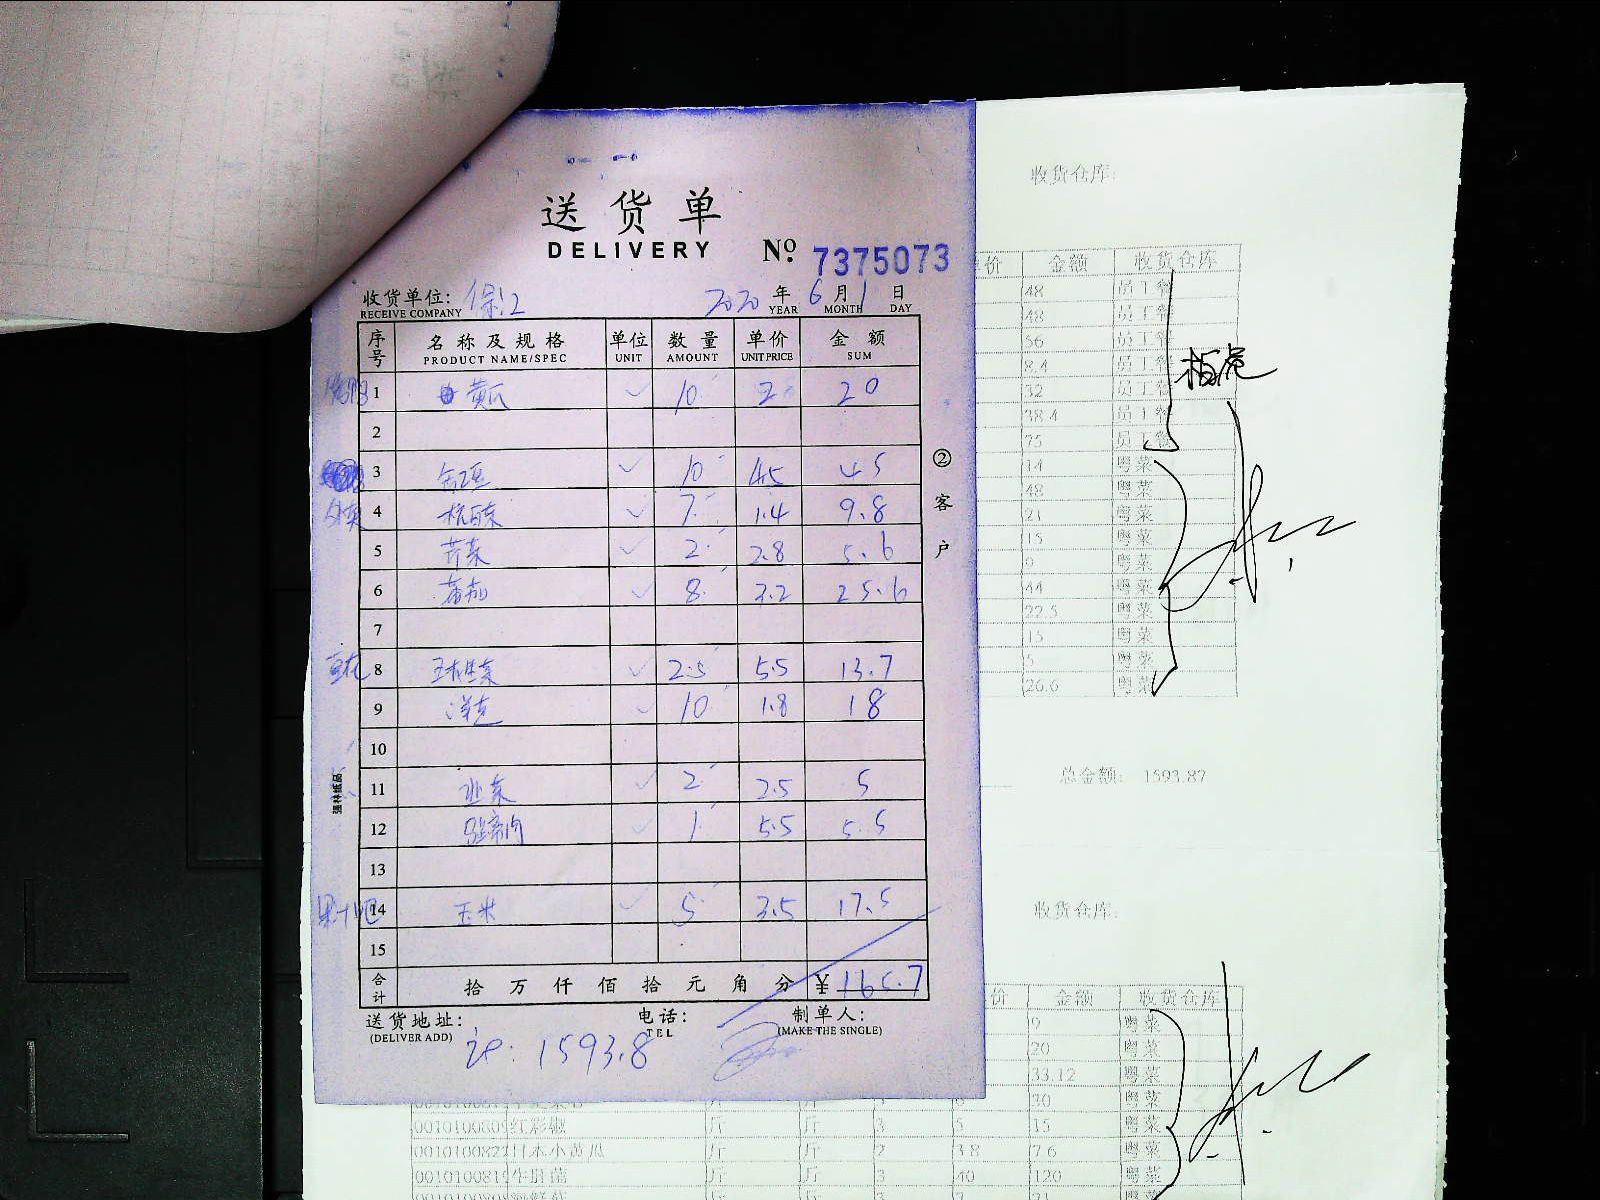 送货单
DELIVERY
No. 7375073
收货单位:
RECEIVE COMPANY
2020 年 6 月 1 日
YEAR MONTH DAY
序号 名称及规格 单位 数量 单价 金额
PRODUCT NAME/SPEC UNIT AMOUNT UNIT PRICE SUM
1 黄瓜 10 2 20
2
3 10 4.5 45
4 7 1.4 9.8
5 芹菜 2 2.8 5.6
6 番茄 8 3.2 25.6
7
8 2.5 5.5 13.7
9 10 1.8 18
10
11 韭菜 2 2.5 5
12 1 5.5 5.5
13
果汁吧 14 玉米 5 3.5 17.5
15
合计 拾 万 仟 佰 拾 元 角 分 ¥ 165.7
送货地址:
(DELIVER ADD)
电话:
TEL
制单人:
(MAKE THE SINGLE)
1593.8
② 客户
强林纸品
收货仓库:
价 金额 收货仓库
48 员工餐
48 员工餐
56 员工餐
8.4 员工餐
32 员工餐
38.4 员工餐
75 员工餐
14 粤菜
48 粤菜
21 粤菜
15 粤菜
9 粤菜
44 粤菜
22.5 粤菜
15 粤菜
5 粤菜
26.6 粤菜
总金额: 1593.87
收货仓库:
价 金额 收货仓库
9 粤菜
20 粤菜
33.12 粤菜
30 粤菜
红彩椒 斤 斤 3 5 15 粤菜
日本小黄瓜 斤 斤 2 3.8 7.6 粤菜
斤 斤 3 40 120 粤菜